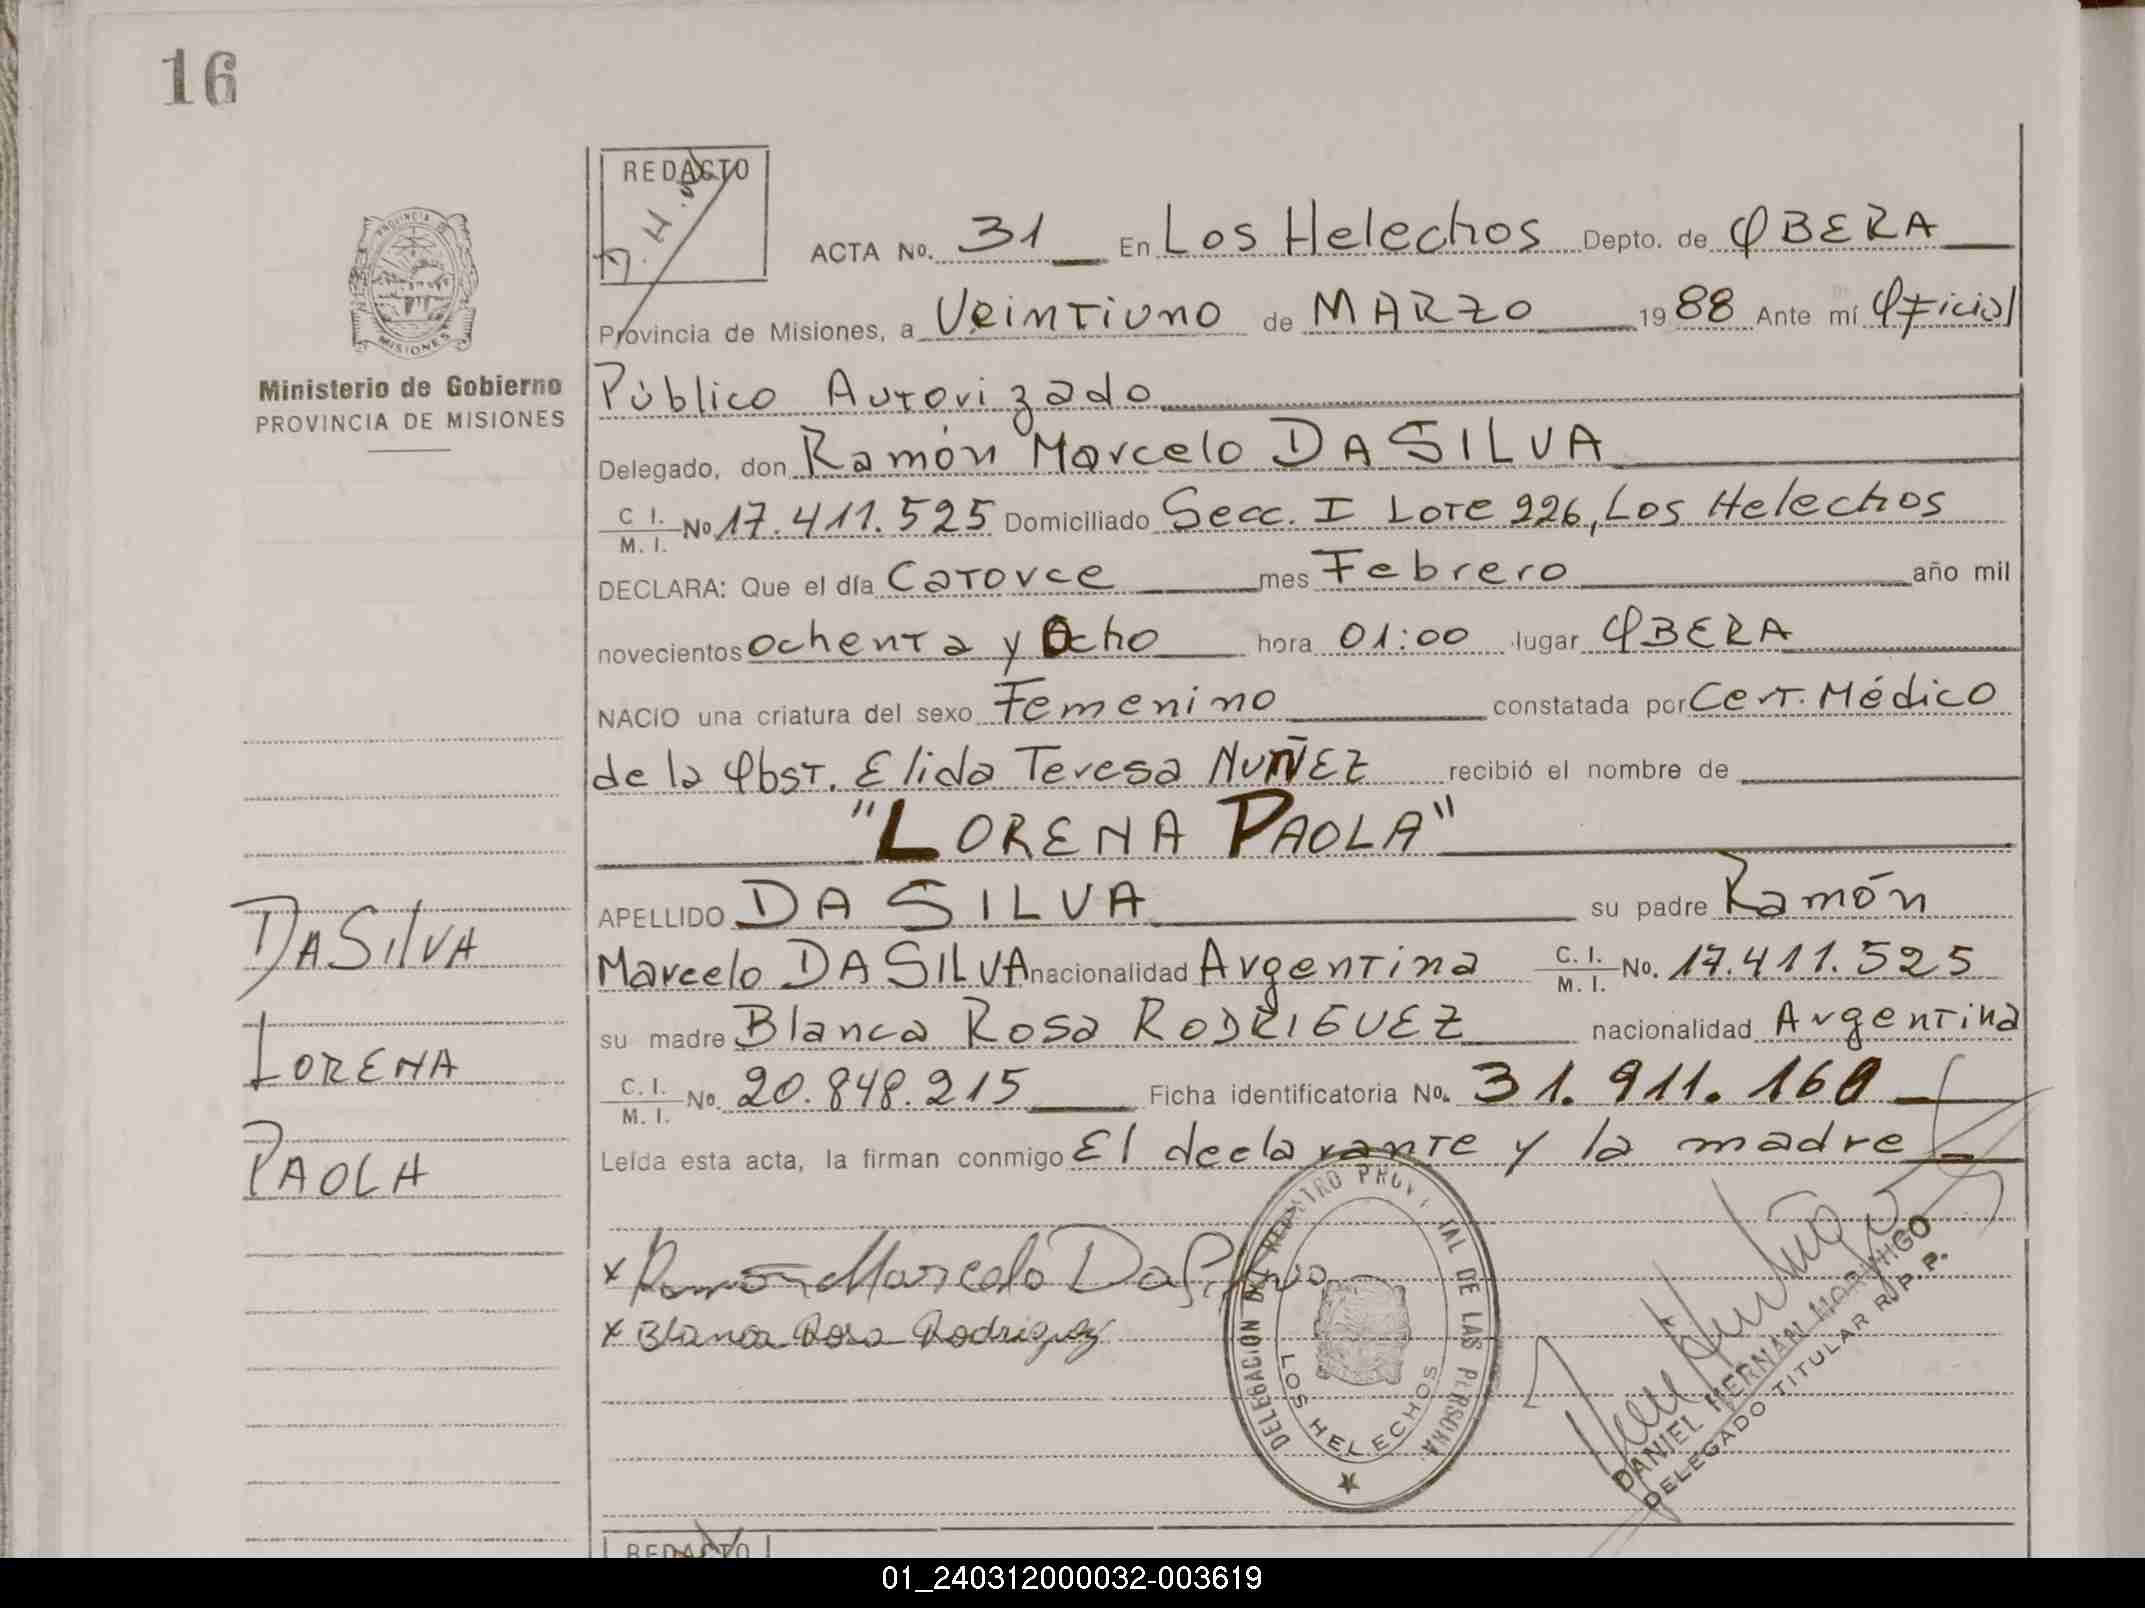 16
REDACTO
ACTA No. 31 En Los Helechos Depto. de OBERA
Provincia de Misiones, a Veintiuno de MARZO 1988 Ante mí Oficial
Público Autorizado
Delegado, don Ramón Marcelo DA SILVA
C. I. / M. I. No 17.411.525 Domiciliado Secc. I Lote 226, Los Helechos
DECLARA: Que el día Catorce mes Febrero año mil
novecientos ochenta y Ocho hora 01:00 lugar OBERA
NACIO una criatura del sexo Femenino constatada por Cert. Médico
de la Obst. Elida Teresa NUÑEZ recibió el nombre de
"LORENA PAOLA"
APELLIDO DA SILVA su padre Ramón
Marcelo DA SILVA nacionalidad Argentina C. I. / M. I. No. 17.411.525
su madre Blanca Rosa RODRIGUEZ nacionalidad Argentina
C. I. / M. I. No. 20.848.215 Ficha identificatoria No. 31.911.161
Leída esta acta, la firman conmigo El declarante y la madre
x Ramón Marcelo Da Silva
x Blanca Rosa Rodriguez
PROVINCIA DE
MISIONES
Ministerio de Gobierno
PROVINCIA DE MISIONES
DA SILVA
LORENA
PAOLA
DELEGACION DEL REGISTRO PROVINCIAL DE LAS PERSONAS
LOS HELECHOS
DANIEL HERNAN
DELEGADO TITULAR R. P. P.
REDACTO
01_240312000032-003619